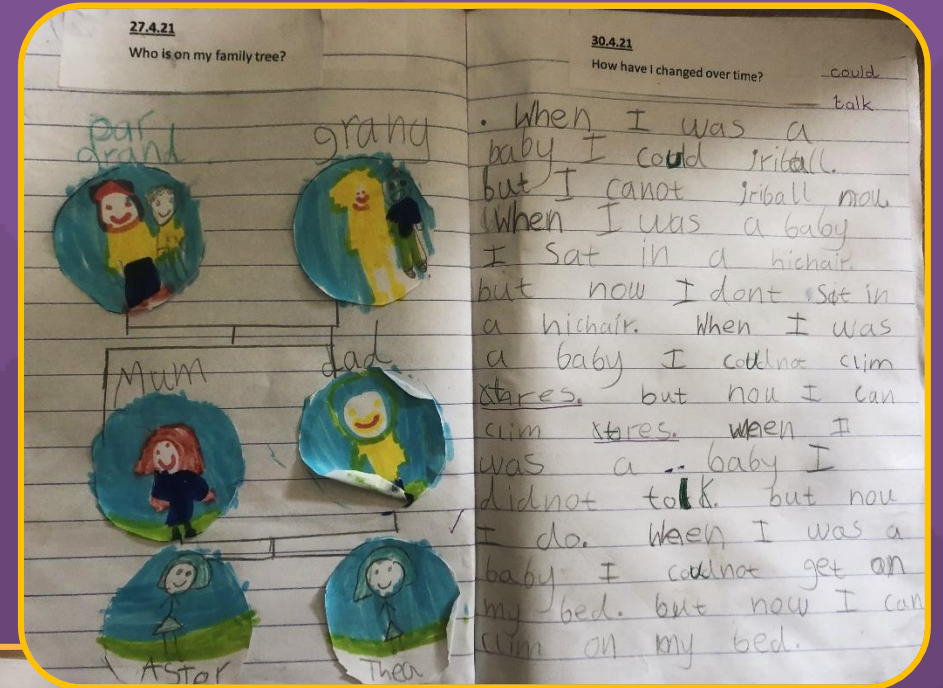 27.4.21
Who is on my family tree?
par
grand
grany
Mum
dad
Astor
Thea
30.4.21
How have I changed over time?
could
talk
. When I was a
baby I could
but I canot now.
When I was a baby
I sat in a hichair.
but now I dont sat in
a hichair. When I was
a baby I couldnot clim
stares. but nou I can
clim stares. When I
was a .. baby I
didnot tolk. but nou
I do. When I was a
baby I couldnot get on
my bed. but now I can
clim on my bed.